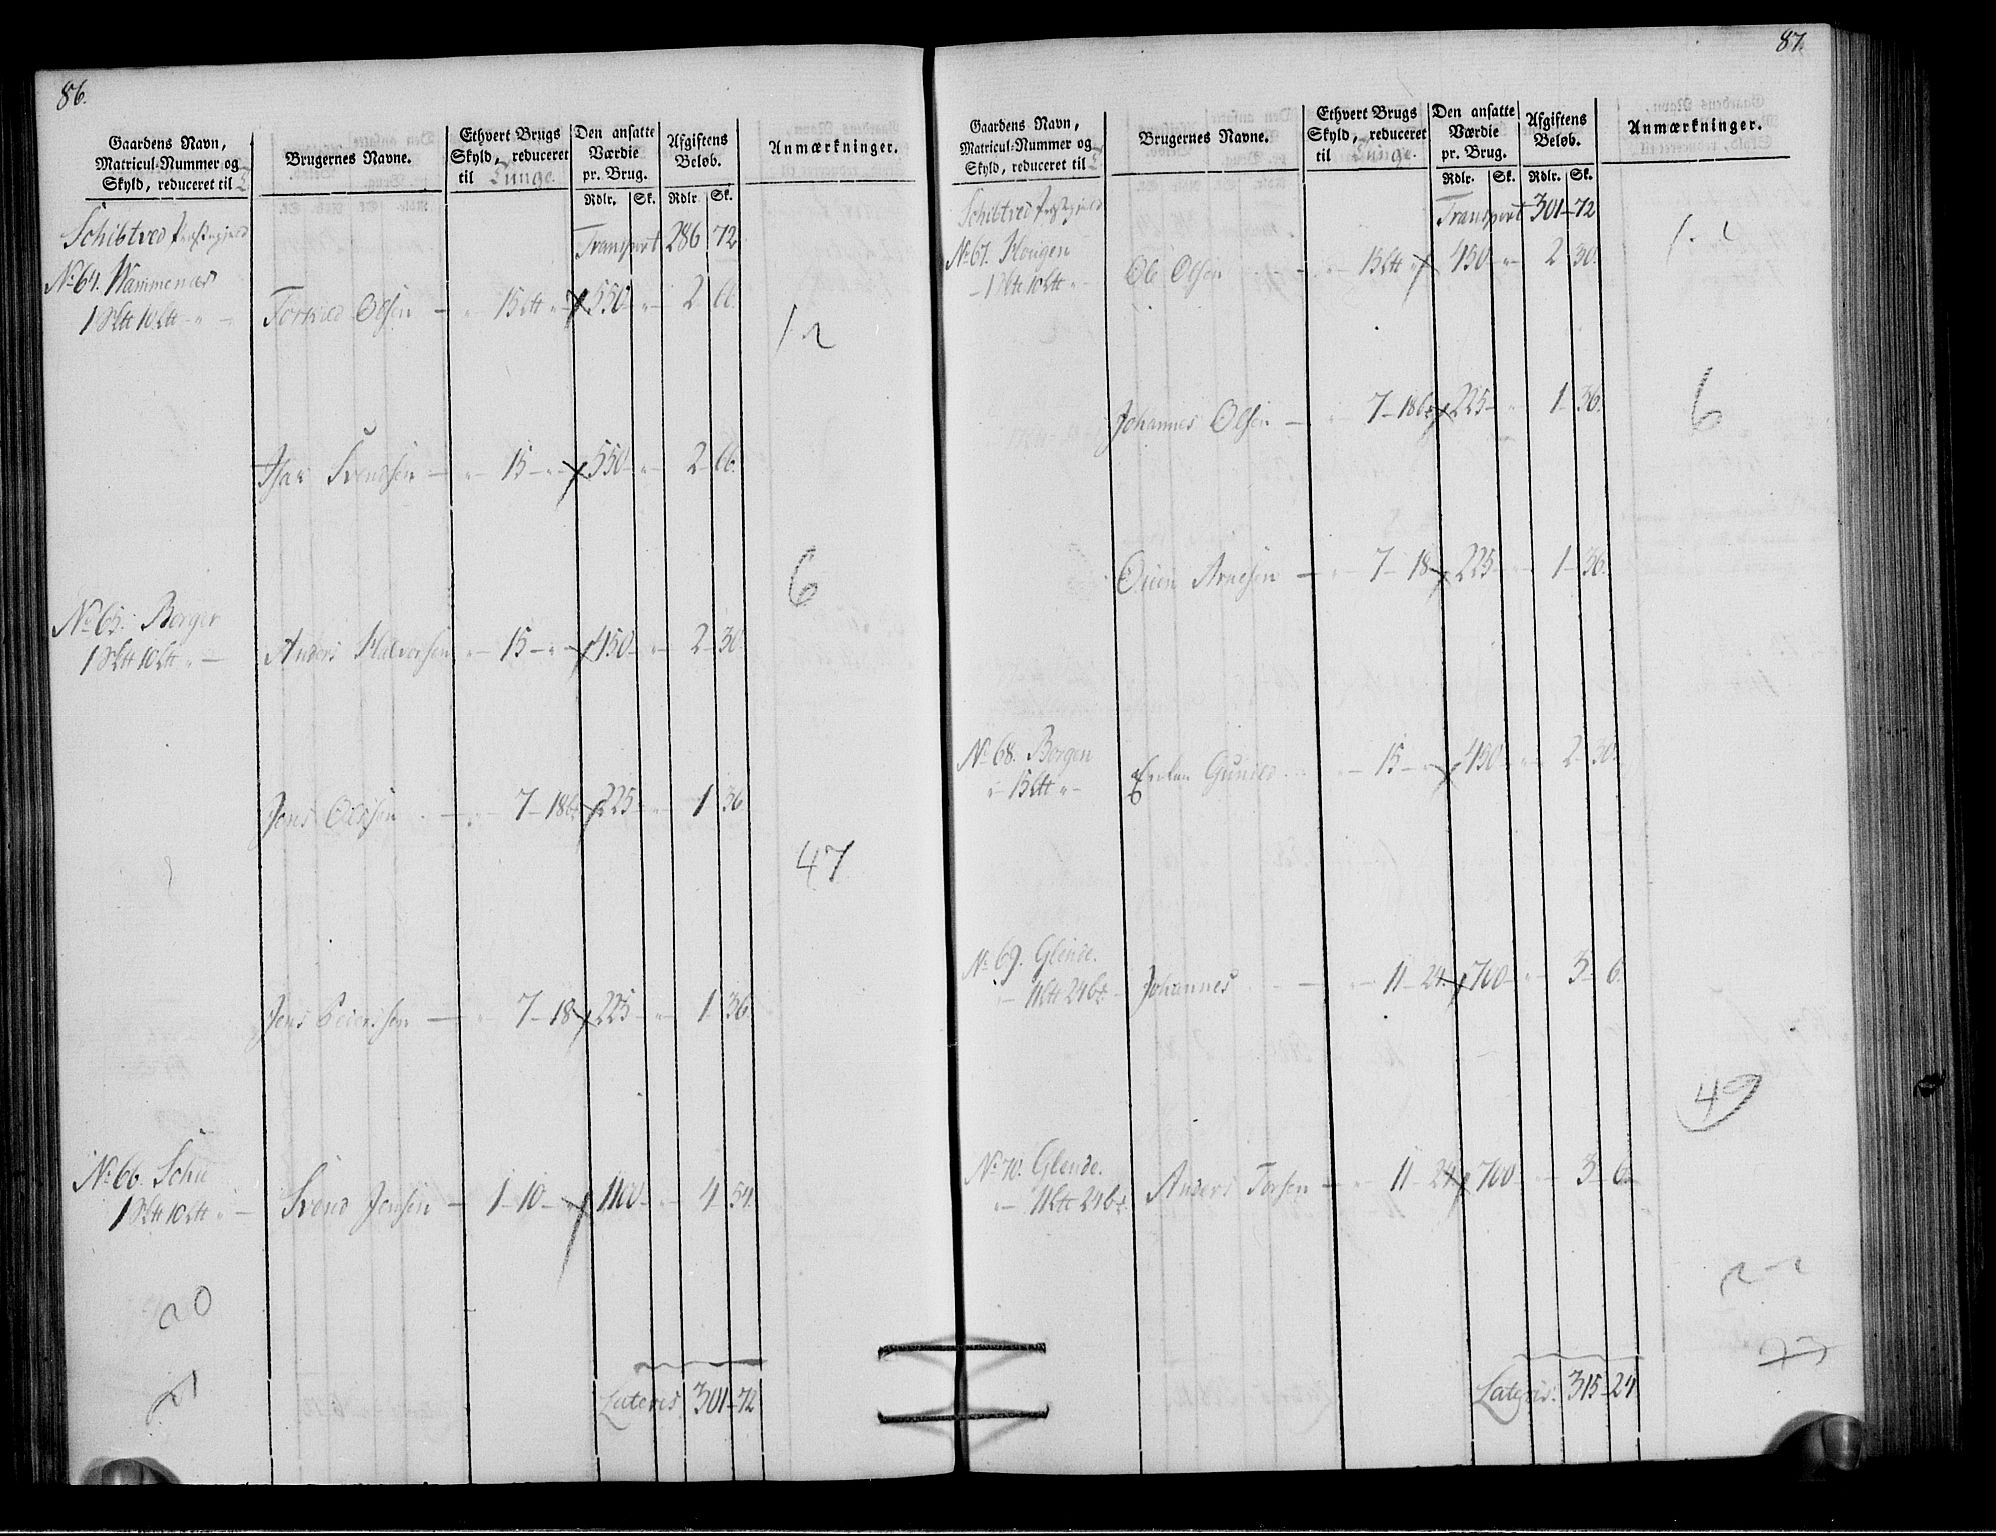 86.
Gaardens Navn, Matricul-Nummer og Skyld, reduceret til
Brugernes Navne.
Ethvert Brugs Skyld, reduceret til Tunge.
Den ansatte Værdie pr. Brug.
Afgiftens Beløb.
Anmærkninger.
Rdlr. Sk. Rdlr. Sk.
Schibtved Præstegjeld Transport 286 72
No 64. Wammenæs
1 Pltt 10 Ltt " — Torkild Olsen — " 15 Ltt " 550 — " — 2 66.
1 2
Isak Svendsen — " — 15 — " — 550 — " — 2 — 66.
6
No 65. Berger
1 Pltt 10 Ltt " — Anders Halvorsen " — 15 — " — 450 — " — 2 — 30.
Jens Olsen — " — 7 — 18 225 — " — 1 36
47
Jens Peiersen — " 7 — 18 225 — " — 1 — 36.
No 66. Schie
1 Pltt 10 Ltt " — Svend Jensen — 1 — 10 — " 1100 — " — 4 — 54.
20
21
Lateris 301 — 72
87.
Gaardens Navn, Matricul-Nummer og Skyld, reduceret til
Brugernes Navne.
Ethvert Brugs Skyld, reduceret til Tunge.
Den ansatte Værdie pr. Brug.
Afgiftens Beløb.
Anmærkninger.
Rdlr. Sk. Rdlr. Sk.
Schibtved Præstegjeld Transport 301 — 72
No 67. Hougen
— 1 Pltt 10 Ltt " — Ole Olsen — " — 15 Ltt " 450 — " — 2 30.
Johannes Olsen — " 7 — 18 225 — " 1 — 36.
6
Oien Arnesen — " — 7 — 18 — 225 — " — 1 — 36.
No 68. Borgen
" — 15 Ltt " — Enken Gunild — 15 — " 450 — " — 2 — 30.
No 69. Glende.
" — 11 Ltt 24 Johannes — " — 11 — 24 700 — " — 3 — 6.
49
No 70. Glende.
" — 11 Ltt 24 Anders Torsen — " — 11 — 24 700 — " — 3 — 6.
Lateris. 315 — 24